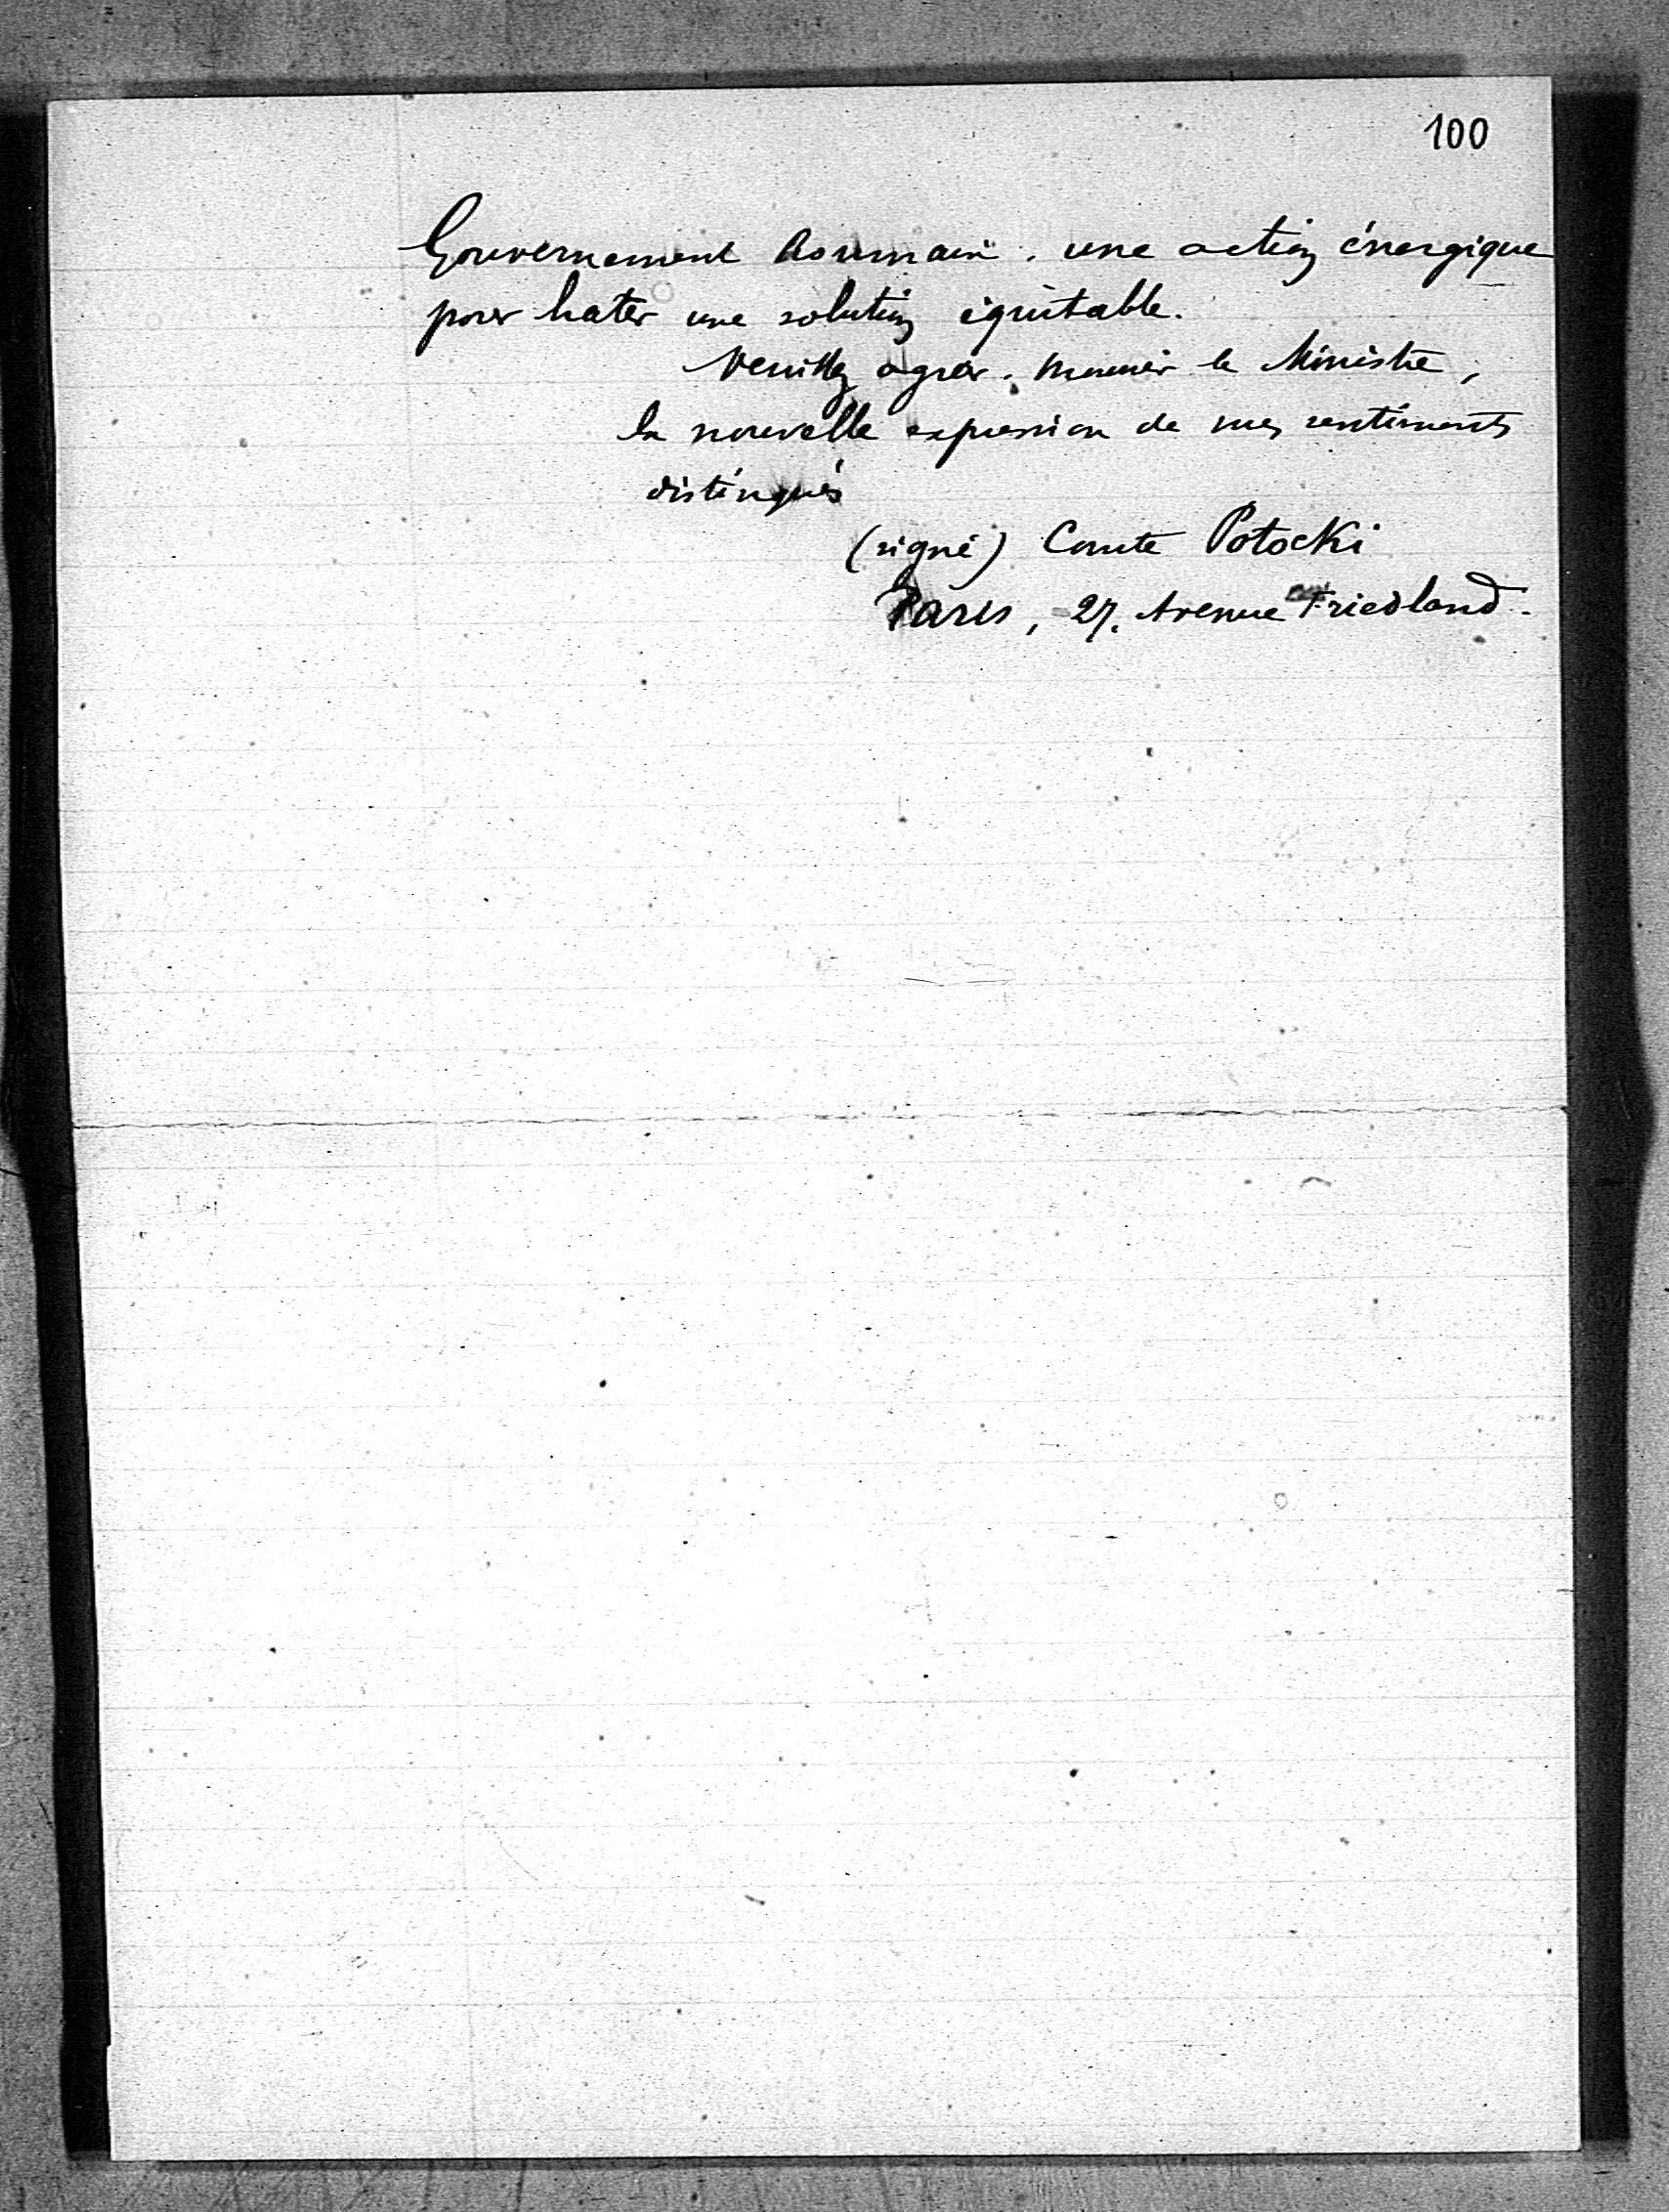 100
Gouvernement Roumain. une action énergique
pour hater une solution équitable.
Veuillez agréer. Monsieur le Ministre,
la nouvelle expression de mes sentiments
distingués
(signé) Comte Potocki
Paris, 27. Avenue Friedland.